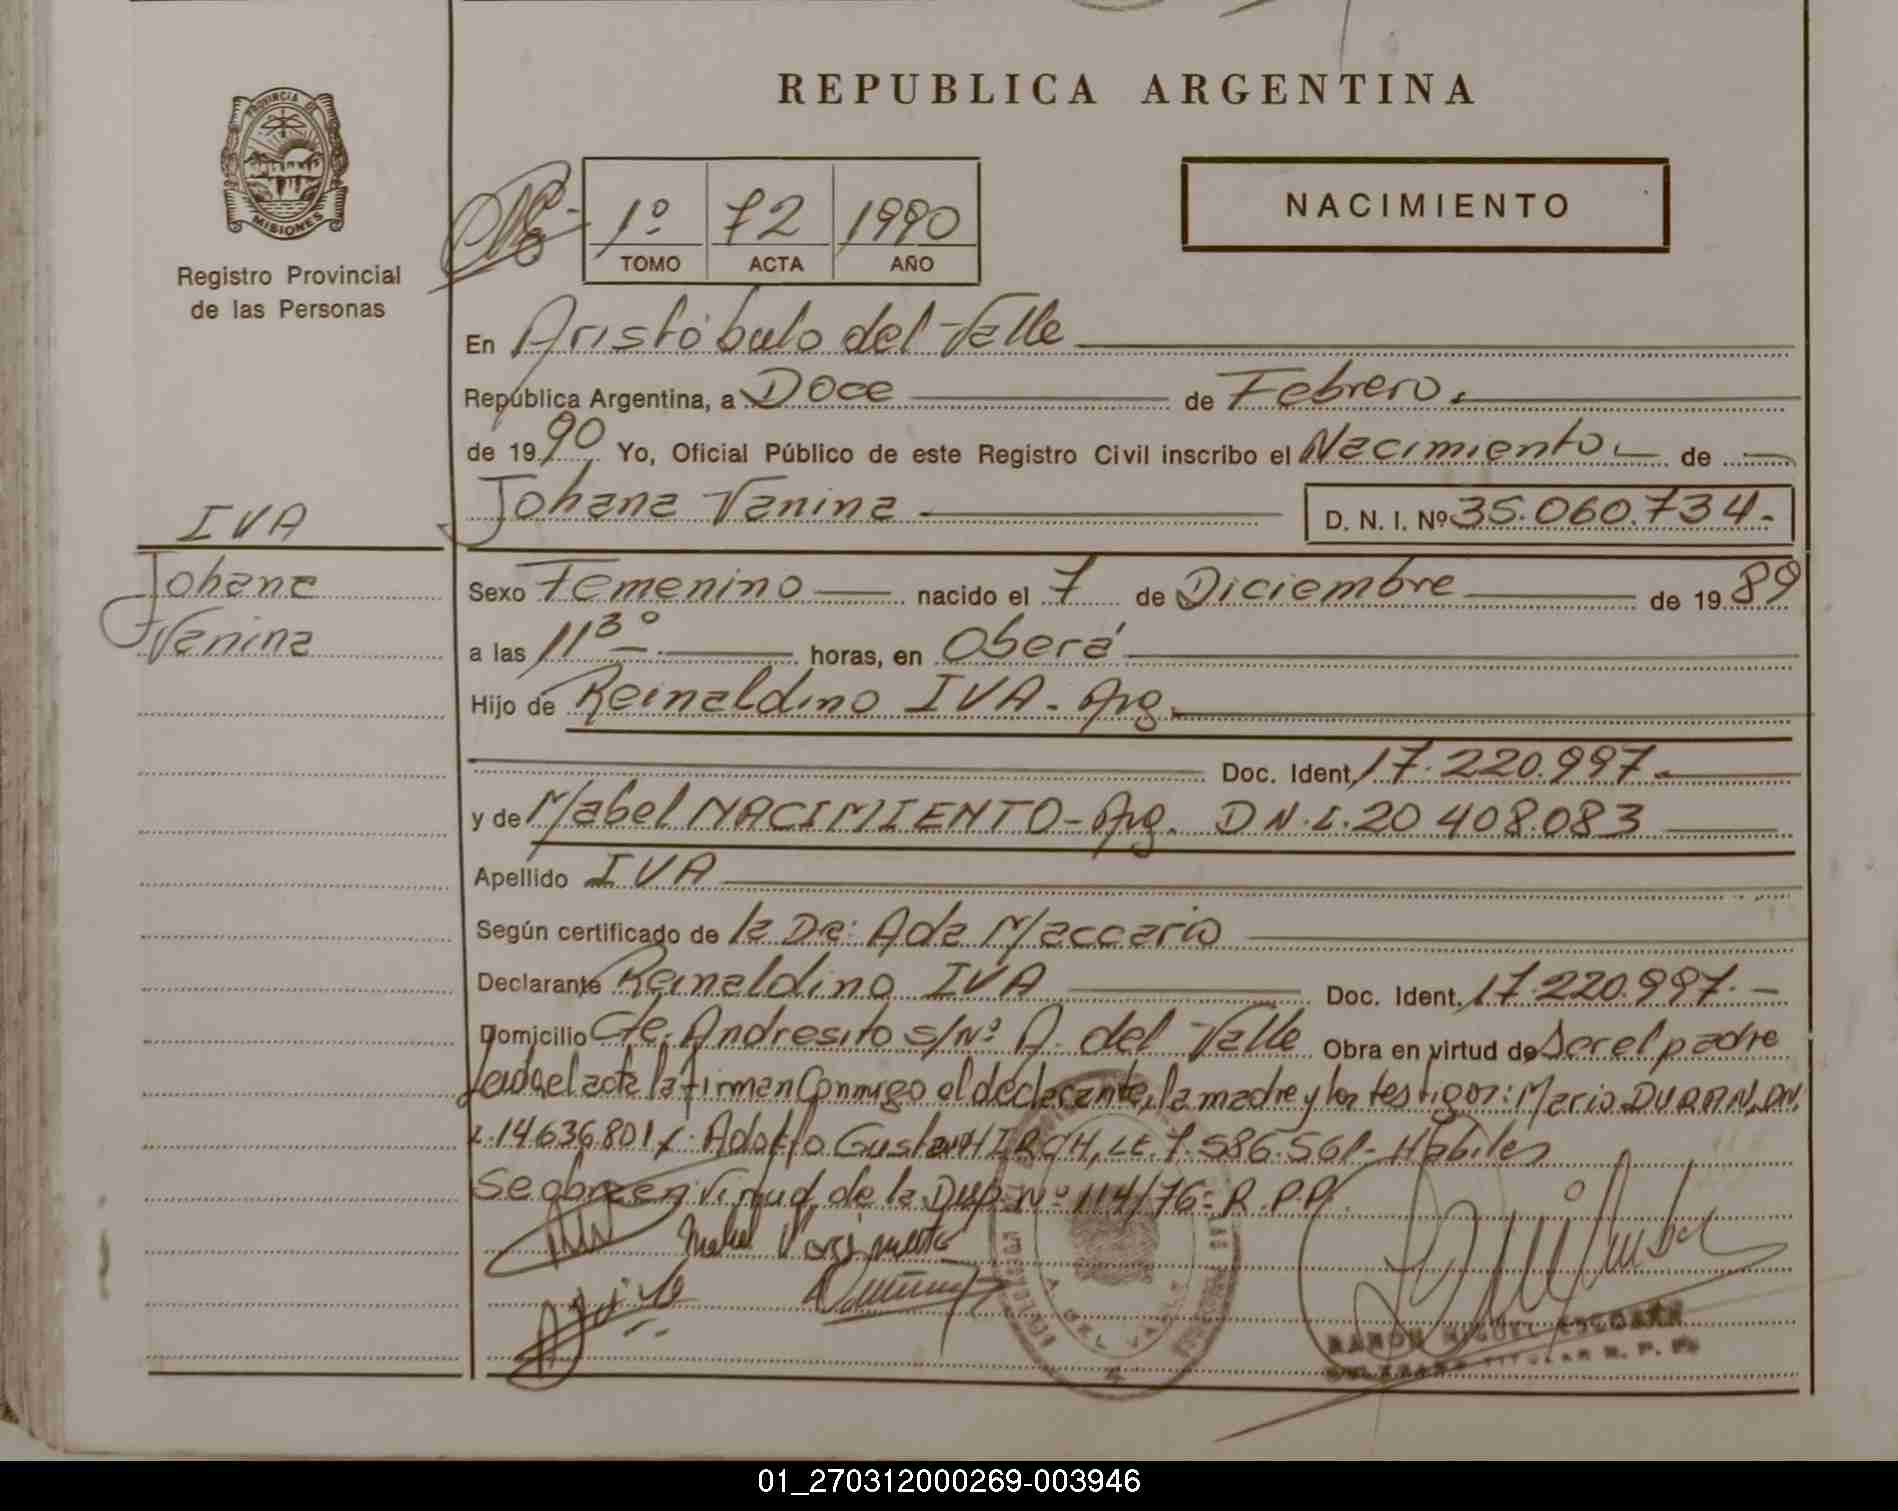 REPUBLICA ARGENTINA
PROVINCIA DE
MISIONES
Registro Provincial
de las Personas
1º 72 1990
TOMO ACTA AÑO
NACIMIENTO
En Aristóbulo del Valle
República Argentina, a Doce de Febrero.
de 1990 Yo, Oficial Público de este Registro Civil inscribo el Nacimiento de
Johana Vanina D. N. I. Nº 35.060.734.-
IVA
Johana
Vanina
Sexo Femenino nacido el 7 de Diciembre de 1989
a las 11 30 horas, en Oberá
Hijo de Reinaldino IVA - Arg.
Doc. Ident. 17.220.997.-
y de Mabel NACIMIENTO - Arg. D.N.I. 20 408.083
Apellido IVA
Según certificado de la Dra: Ada Maccario
Declarante Reinaldino IVA Doc. Ident. 17.220.997.-
Domicilio Cte. Andresito s/Nº A. del Valle Obra en virtud de Ser el padre
Leída el acta la firman Conmigo el declarante, la madre y los testigos: Mario DURAN, DN.
I. 14.636.801 Adolfo Gustavo HIRCH, LE. 7.586.561- Hábiles
Se obra en Virtud de la Disp. Nº 114/76- R.P.P.
Mabel Nacimiento
A DEL VALLE
RAMON MIGUEL ESCOBAR
TITULAR R. P. P.
01_270312000269-003946